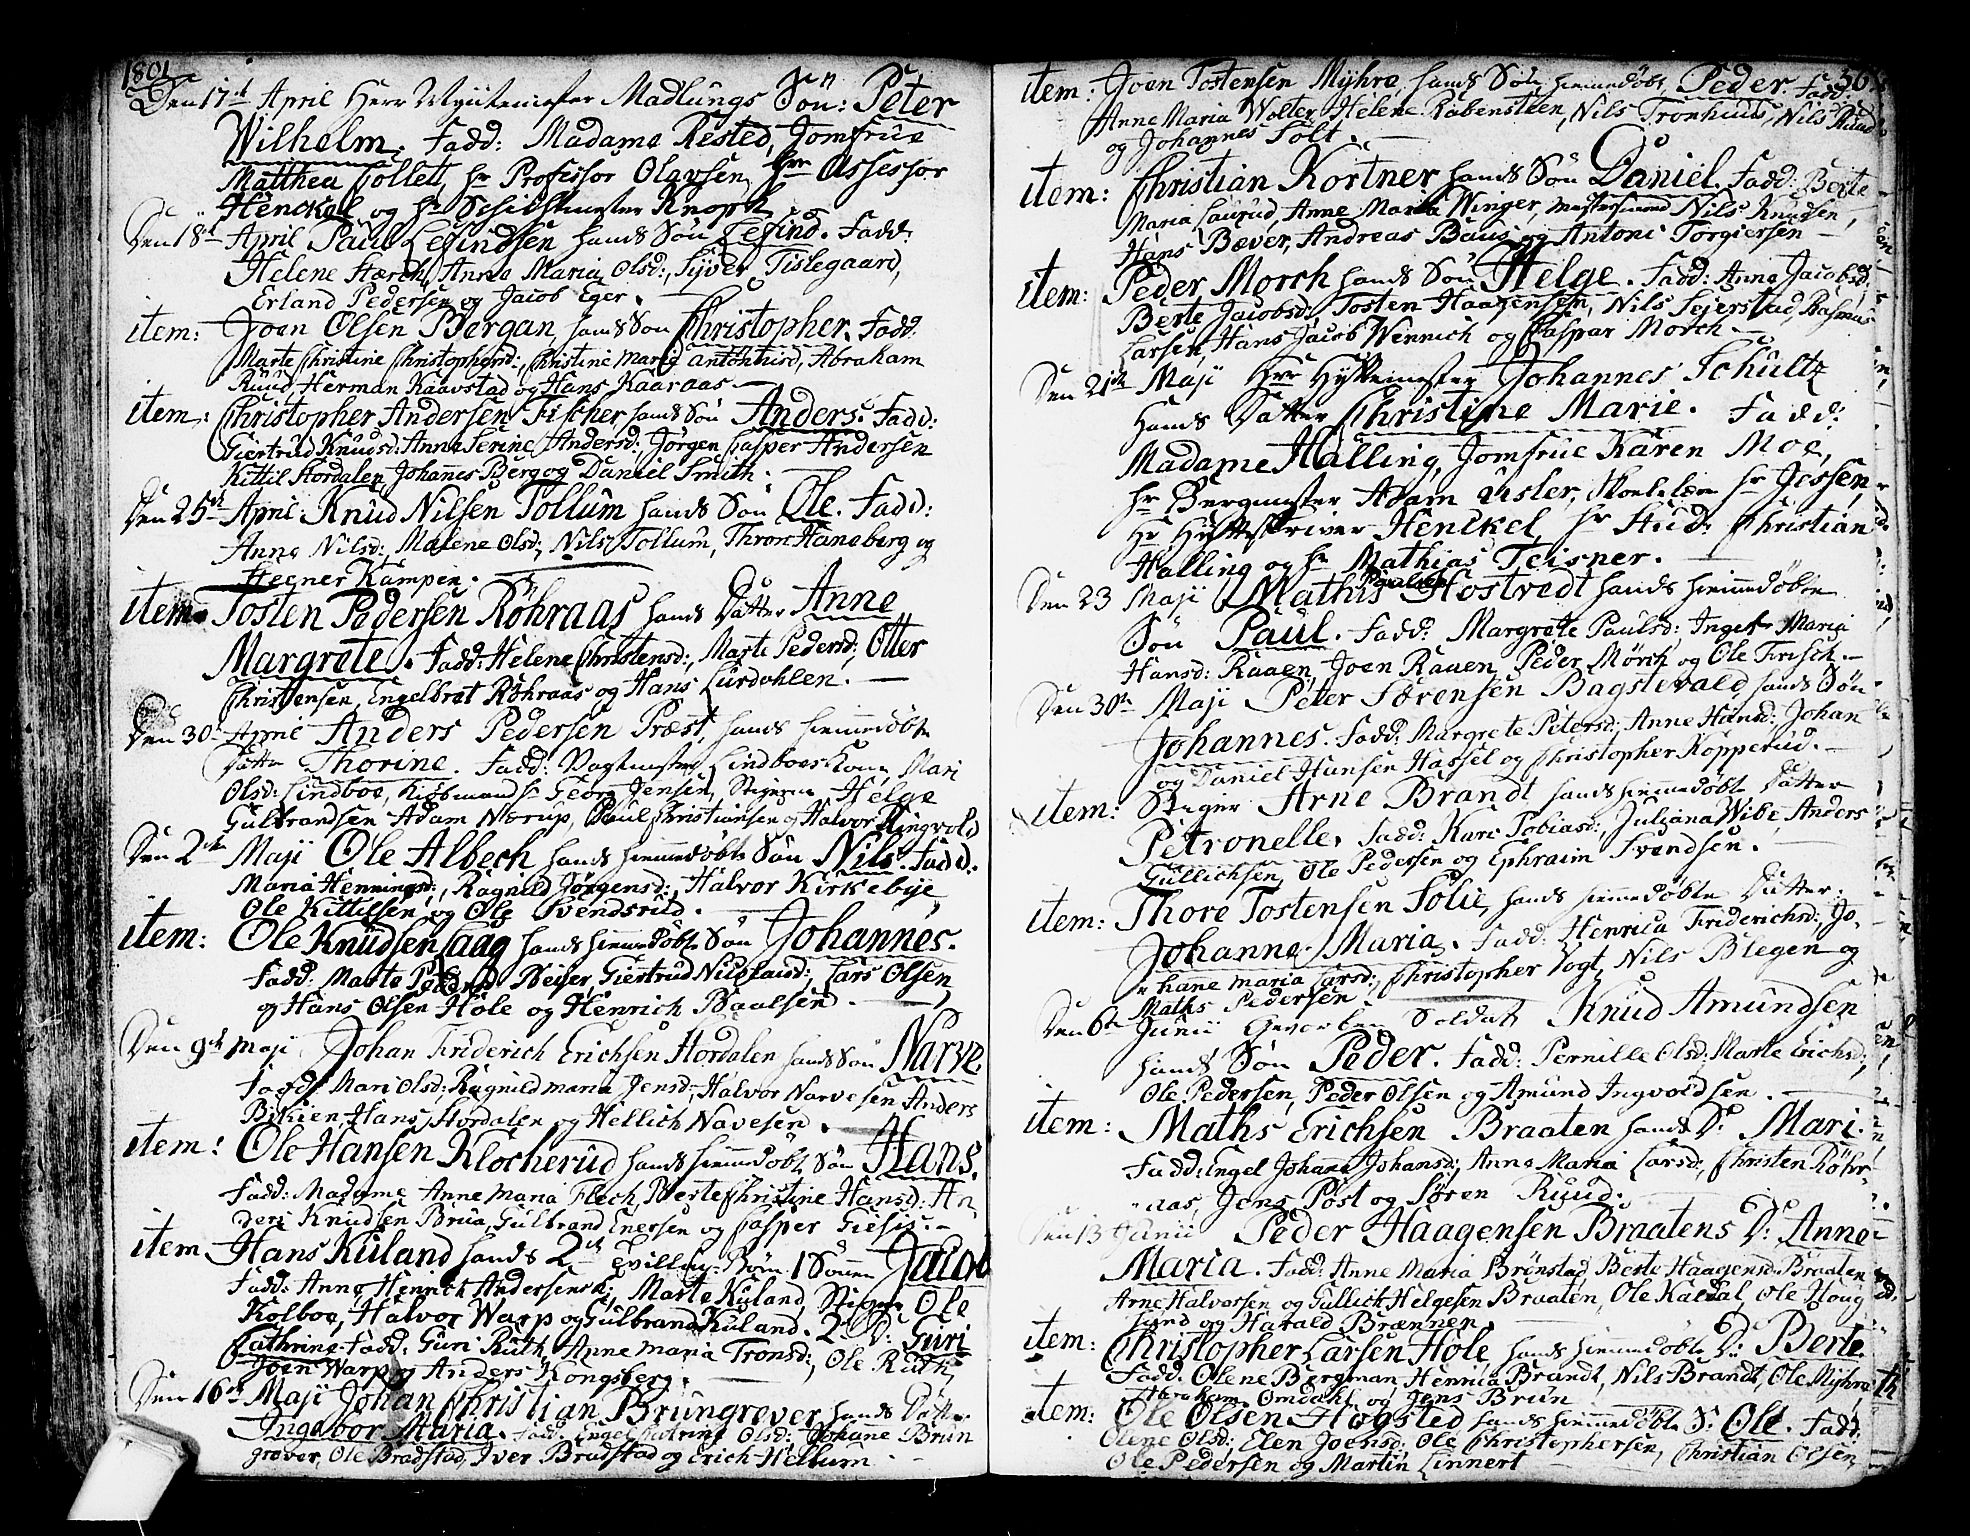 1801
Den 17de April Herr Myntemester Madlungs Søn: Peter
Wilhelm. Fadd: Madame Rested, Jomfrue
Matthea Collett, hr Professor Olavsen, hr Assessor
Henckel og hr Knoph
Den 18de April Paul Lefindsen hands Søn Lefind. Fadd:
Helene Stærch, Anne Maria Olsd:, Syver Tislegaard,
Erland Pedersen og Jacob Eger.
item: Joen Olsen Bergan, hands Søn Christopher. Fadd:
Marte Christine Christophersd:, Christine Maria Antonisd, Abraham
Ruud, Herman Raavstad og Hans Kaaraas
item: Christopher Andersen Fischer hands Søn Anders. Fadd:
Giertrud Knudsd: Anne Serine Andersd:, Jørgen Casper Andersen
Kittil Hordalen, Johannes Berg og Daniel Smith.
Den 25de April Knud Nilsen Tollum hands Søn Ole. Fadd:
Anne Nilsd:, Malene Olsd:, Nils Tollum, Thron Haneberg og
Hegner Kampen.
item. Tosten Pedersen Röhraas hands Datter Anne
Margrete. Fadd: Helene Christensd:, Marte Pedersd:, Otter
Christensen, Engelbret Röhraas og Hans Lurdahlen.
Den 30 April Anders Pedersen Præst, hands hiemmedøbte
Datter Thorine. Fadd: Vagtmester Lindboes Kone, Mari
Olsd: Lindboe, Kiøbmand hr Georg Jensen, Stigerne Helge
Gulbrandsen Adam Nærup, Paul Christiansen og Halvor Ringvold
Den 2den Maji Ole Albech hands hiemmedøbte Søn Nils. Fadd:
Maria Henningsd:, Ragnild Jörgensd:, Halvor Kirkebye,
Ole Kittilsen og Ole Svendsrud.
item: Ole Knudsen Saag hands hiemmedøbte Søn Johannes.
Fadd: Marte Pedersd Beyer, Giertrud Nicolaisd:, Lars Olsen,
og Hans Olsen Hole og Henrich Paalsen.
Den 9de Maji Johan Friderich Erichsen Hordalen hands Søn Narve.
Fadd: Mari Olsd:, Ragnild Maria Jensd:, Halvor Narvesen Anders
Hans Hordalen og Hellich Navesen.
item: Ole Hansen Klocherud hands hiemmedøbte Søn Hans.
Fadd: Madame Anne Maria Flech, Berte Christine Hansd: An,
ders Knudsen Brua, Gulbrand Enersen og Casper Giesis.
item Hans Kuland hands 2de Tvilling-Børn. 1 Sønnen Jacob
Fadd: Anne Henrich Andersens K:, Marte Kuland, Stiger Ole
Kolboe, Halvor Warp og Gulbrand Kuland. 2 D: Guri
Cathrine. Fadd: Guri Ruth, Anne Maria Tronsd:, Ole Ruth,
Joen Warp og Anders Kongsberg.
Den 16de Maji Johan Christian Brungrøver hands Datter
Ingebor Maria. Fadd: Engel Catrine Olsd:, Johane Brun
grøver, Ole Bradstad, Iver Bradstad og Erich Hellum.
36
item: Joen Tostensen Myhre, hands Søn hiemmedøbt Peder. Fadd:
Anne Maria Wolter, Helene Rabensteen, Nils Tronhuus, Nils Ruud
og Johannes Solt.
item: Christian Körtner hands Søn Daniel. Fadd: Berte
Maria Laurud, Anne Maria Winger, Mestersvend Nils Knudsen,
Hans Bæver, Andreas Baus og Antoni Torgiersen
item: Peder Morch hands Søn Helge. Fadd: Anne Jacobsd,
Berte Jacobsd: Tosten Haagensen, Nils Sejerstad, Rasmus
Larsen, Hans Jacob Wennich og Caspar Morch.
Den 21de Maji Hrr Hyttemester Johannes Schultz
Hands Datter Christine Marie. Fadd:
Madame Halling, Jomfrue Karen Moe,
hr Bergmester Adam Lisler, Skoelelærer hr Jessen,
Hr Hytteskriver Henckel, hr Stud: Christian
Halling og hr Mathias Teisner.
Den 23 Maji Mathis Paulsen Hostvedt hands hiemmedøbte
Søn Paul. Fadd: Margrete Paulsd: Ingebr Maria
Hansd: Raaen, Joen Raaen, Peder Mörch og Ole Frisch.
Den 30te Maji Peter Sørensen Bagstevald hands Søn
Johannes. Fadd: Margrete Petersd:, Anne Hansd: Johan
og Daniel Hansen Hassel og Christopher Kopperud.
item: Stiger Arne Brandt hands hiemmedøbte Datter
Petronelle. Fadd: Kari Tobiasd:, Juliana Wibe, Anders
Gullichsen, Ole Pedersen og Ephraim Svendsen.
item: Thore Tostensen Folie, hands hiemmedøbte Datter
Johanne Maria. Fadd: Henrica Friderichsd:, Jo-
hane Maria Larsd:, Christopher Vogt, Nils Blegen og
Maths Pedersen.
Den 6te Junii Gevorben Soldat Knud Amundsen
hands Søn Peder. Fadd: Pernille Olsd: Marte Erichsd:,
Ole Pedersen, Peder Olsen og Amund Ingvoldsen.
item: Maths Erichsen Braaten hands D: Mari.
Fadd: Engel Johane Johansd:, Anne Maria Larsd:, Christen Röhr-
aas, Jens Post og Søren Ruud.
Den 13 Junii Peder Haagensen Braatens D: Anne
Maria. Fadd: Anne Maria Brönstad, Berte Haagensd: Braaten
Arne Halvorsen og Gullich Helgesen Braaten, Ole Kaldal, Ole Houg
lund og Harald Brænnen.
item: Christopher Larsen Hole, hands hiemmedøbte D: Berte.
Fadd: Olene Bergman, Hennica Brandt, Nils Brandt, Ole Myhre,
Abraham Omdahl og Jens Brun
item: Ole Olsen Hogsted hands hiemmedøbte S: Ole. Fadd:
Olene Olsd:, Elen Joensd:, Ole Christophersen, Christian Olsen,
Ole Pedersen og Martin Linnert